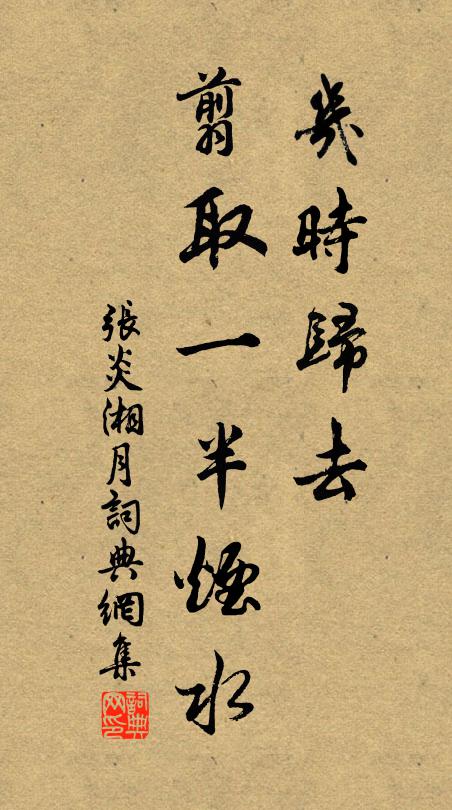 幾時歸去
翦取一半煙水
張炎湘月詞典網集
詞典网印